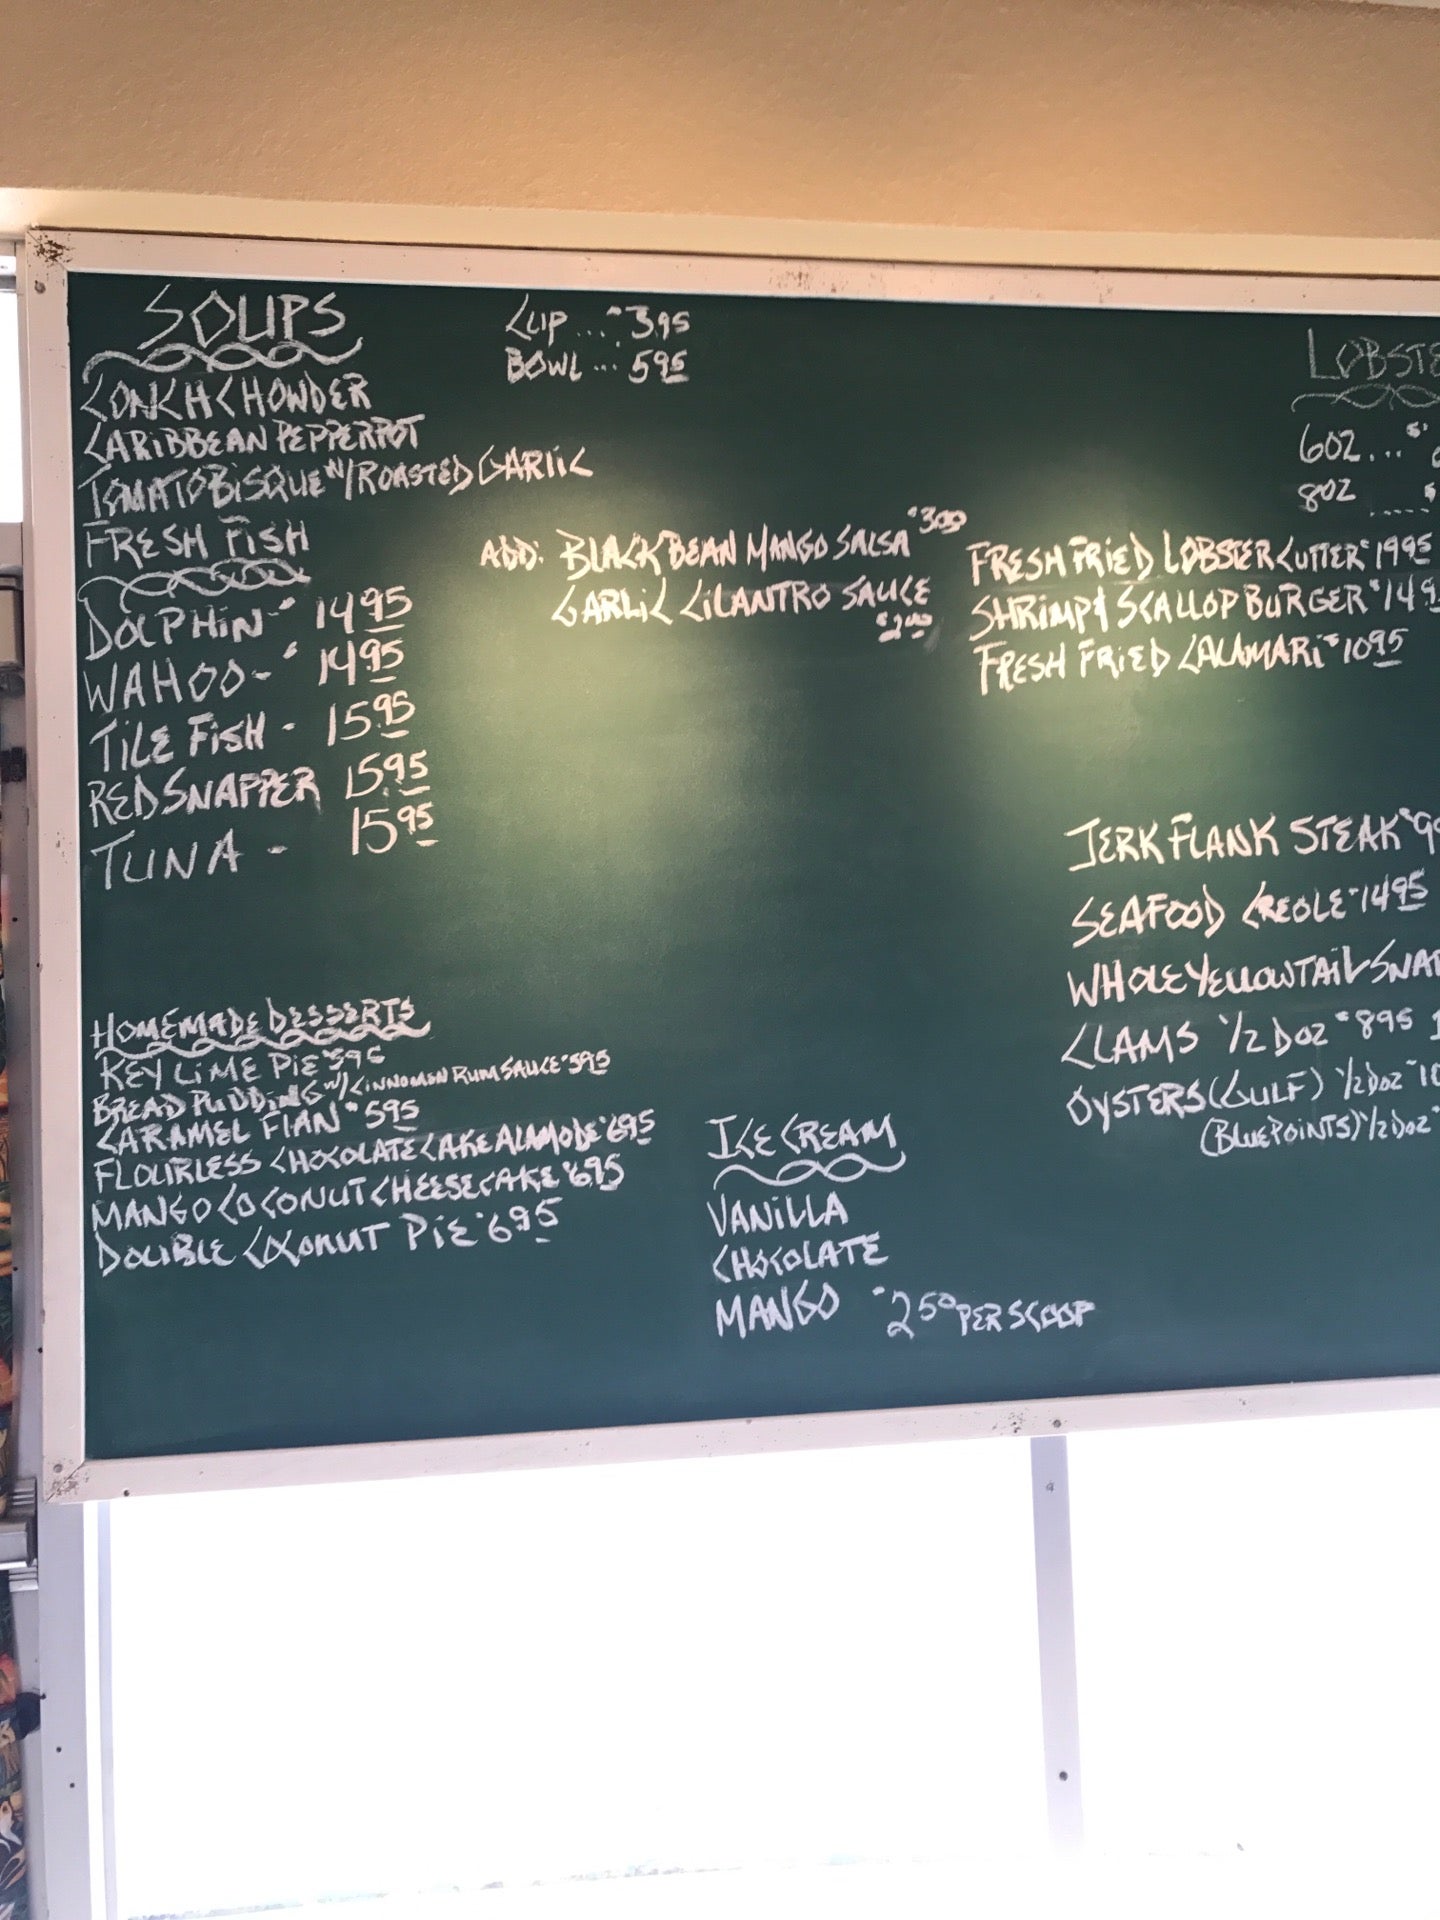 SOUPS
CUP ... $3.95
BOWL ... 5.95
CONCH CHOWDER
CARIBBEAN PEPPERPOT
TOMATO BISQUE W/ ROASTED GARLIC
FRESH FISH
DOLPHIN - $14.95
WAHOO - $14.95
TILE FISH - 15.95
RED SNAPPER 15.95
TUNA - 15.95
ADD: BLACK BEAN MANGO SALSA $3.00
GARLIC CILANTRO SAUCE
$2.00
HOMEMADE DESSERTS
KEY LIME PIE $5.95
BREAD PUDDING W/ CINNOMON RUM SAUCE $5.95
CARAMEL FLAN $5.95
FLOURLESS CHOCOLATE CAKE ALAMODE $6.95
MANGO COCONUT CHEESECAKE $6.95
DOUBLE COCONUT PIE $6.95
ICE CREAM
VANILLA
CHOCOLATE
MANGO $2.50 PER SCOOP
LOBSTE
6OZ ... $
8OZ ..... $
FRESH FRIED LOBSTER CUTTER $19.95
SHRIMP & SCALLOP BURGER $14.9
FRESH FRIED CALAMARI $10.95
JERK FLANK STEAK $9
SEAFOOD CREOLE $14.95
WHOLE YELLOWTAIL SNAP
CLAMS 1/2 DOZ $8.95 1
OYSTERS (GULF) 1/2 DOZ $10
(BLUEPOINTS) 1/2 DOZ $